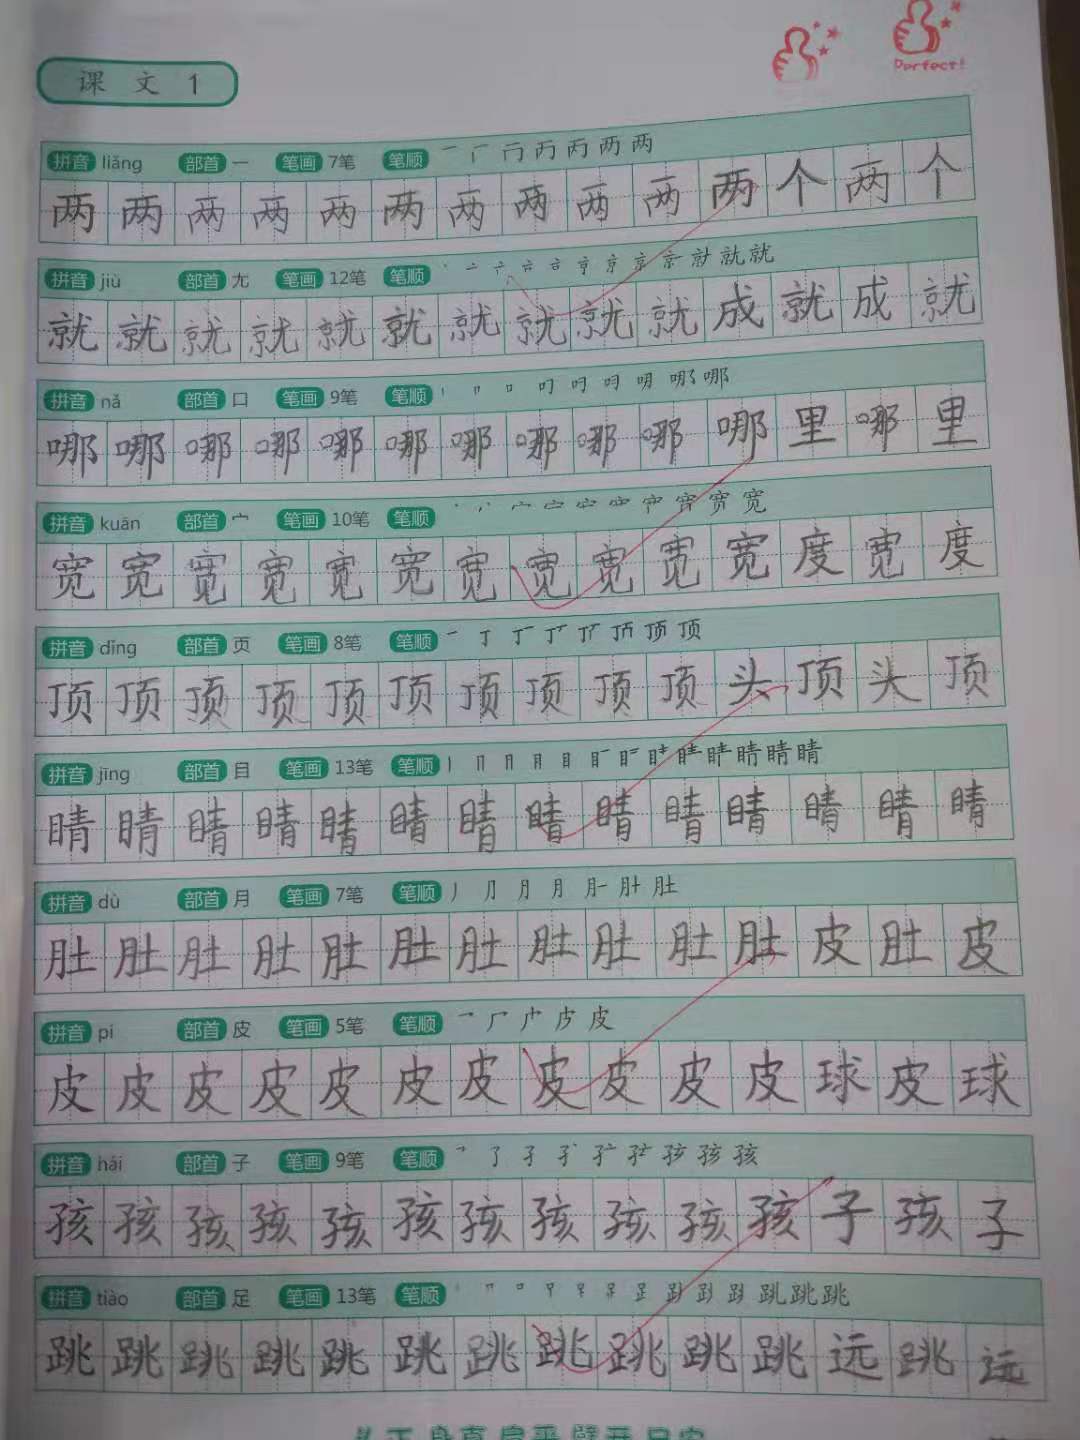 Perfect!
课文1
拼音 liǎng 部首 一 笔画 7笔 笔顺
两两两两两两两两两两两个两个
拼音 jiù 部首 尢 笔画 12笔 笔顺
就就就就就就就就就就成就成就
拼音 nǎ 部首 口 笔画 9笔 笔顺
哪哪哪哪哪哪哪哪哪哪哪里哪里
拼音 kuān 部首 宀 笔画 10笔 笔顺
宽宽宽宽宽宽宽宽宽宽宽度宽度
拼音 dǐng 部首 页 笔画 8笔 笔顺
顶顶顶顶顶顶顶顶顶顶头顶头顶
拼音 jīng 部首 目 笔画 13笔 笔顺
睛睛睛睛睛睛睛睛睛睛睛睛睛睛
拼音 dù 部首 月 笔画 7笔 笔顺
肚肚肚肚肚肚肚肚肚肚肚皮肚皮
拼音 pí 部首 皮 笔画 5笔 笔顺
皮皮皮皮皮皮皮皮皮皮皮球皮球
拼音 hái 部首 子 笔画 9笔 笔顺
孩孩孩孩孩孩孩孩孩孩孩子孩子
拼音 tiào 部首 足 笔画 13笔 笔顺
跳跳跳跳跳跳跳跳跳跳跳远跳远